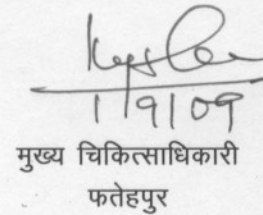 1/9/09
मुख्य चिकित्साधिकारी
फतेहपुर